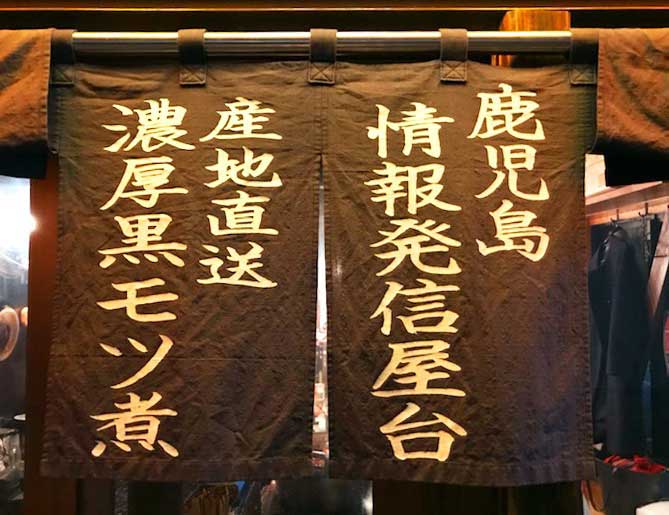 鹿児島
情報発信屋台
産地直送
濃厚黒モツ煮